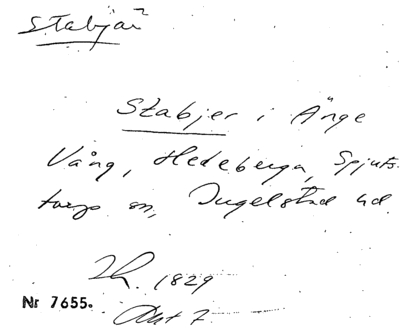 Stabjär
Stabjer i Änge
Vång, Hedeberga, Spjuts-
torps sn, Ingelstad hd.
Lh. 1829
Akt 7.
Nr 7655.